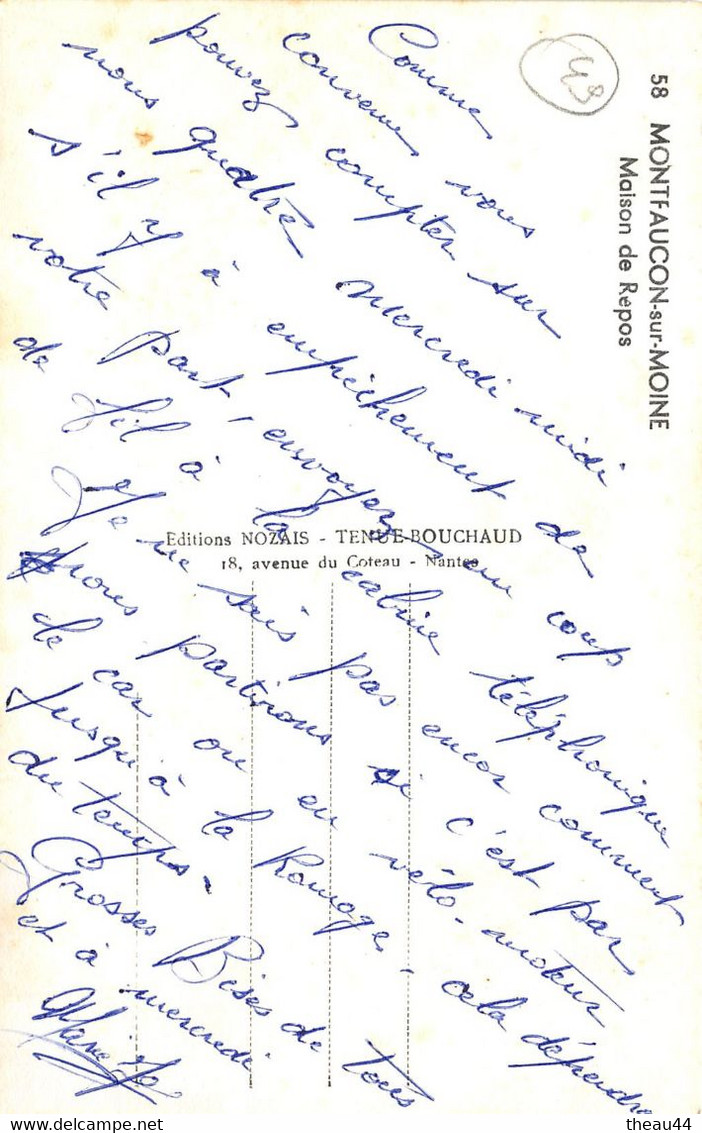 58 MONTFAUCON-sur-MOINE
Maison de Repos
49
Comme
convenu, vous
pouvez compter sur
nous quatre mercredi midi
s'il y à empêchement de
votre part, envoyez un coup
de fil à la cabine téléphonique
Je ne sais pas encor comment
nous partirons si c'est par
le car ou en vélo-moteur
jusqu'à la Romage, cela dépendra
du temps.
Grosses Bises de tous
et à mercredi
Marie Jo
Editions NOZAIS - TENUE-BOUCHAUD
18, avenue du Coteau - Nantes
theau44
www.delcampe.net